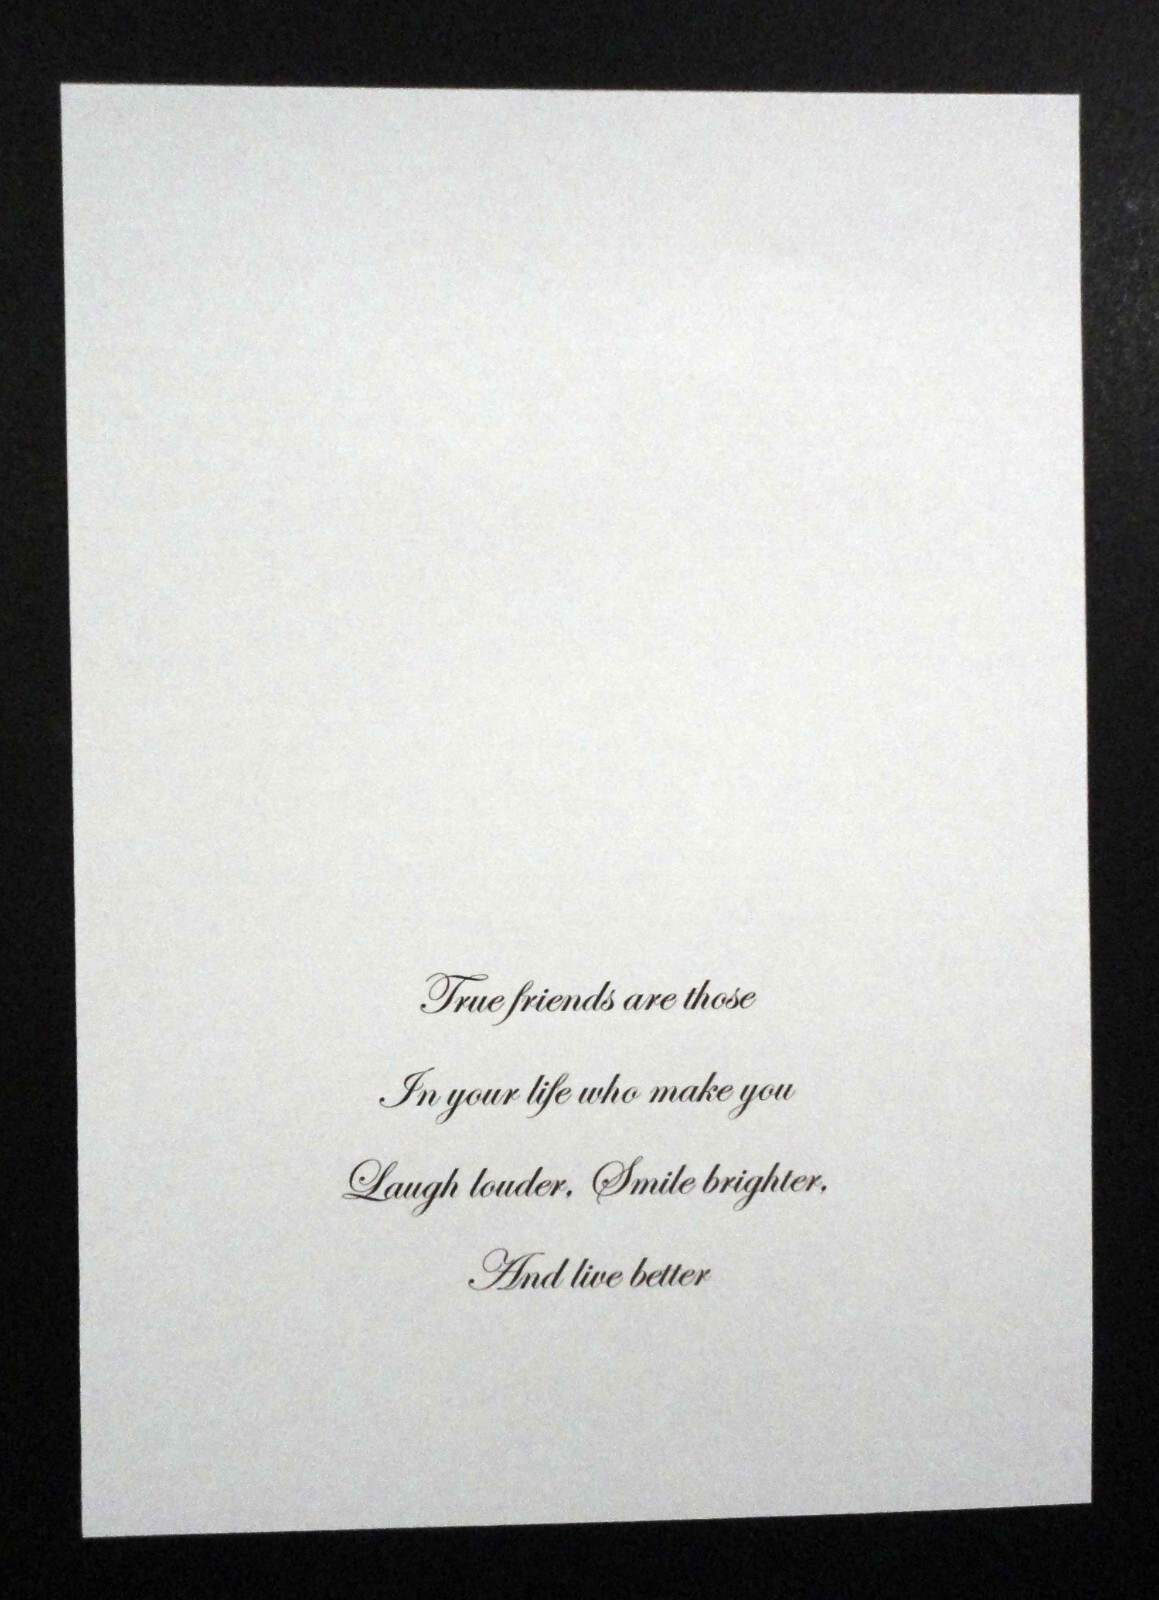 True friends are those
In your life who make you
Laugh louder, Smile brighter,
And live better